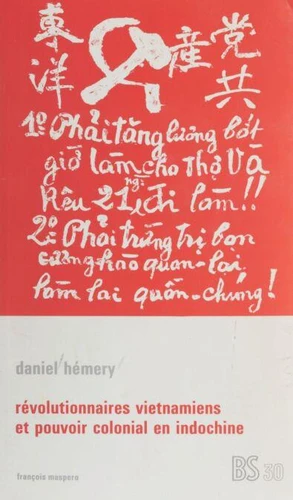 東 產 党
洋 共
1º Phải tăng lương bớt
giờ làm cho Thợ Và
Kêu 21 đi làm!!
2º Phải trừng trị bọn
cường hào quan-lại
làm lai quần-chúng!
daniel hémery
révolutionnaires vietnamiens
et pouvoir colonial en indochine
françois maspero
BS 30